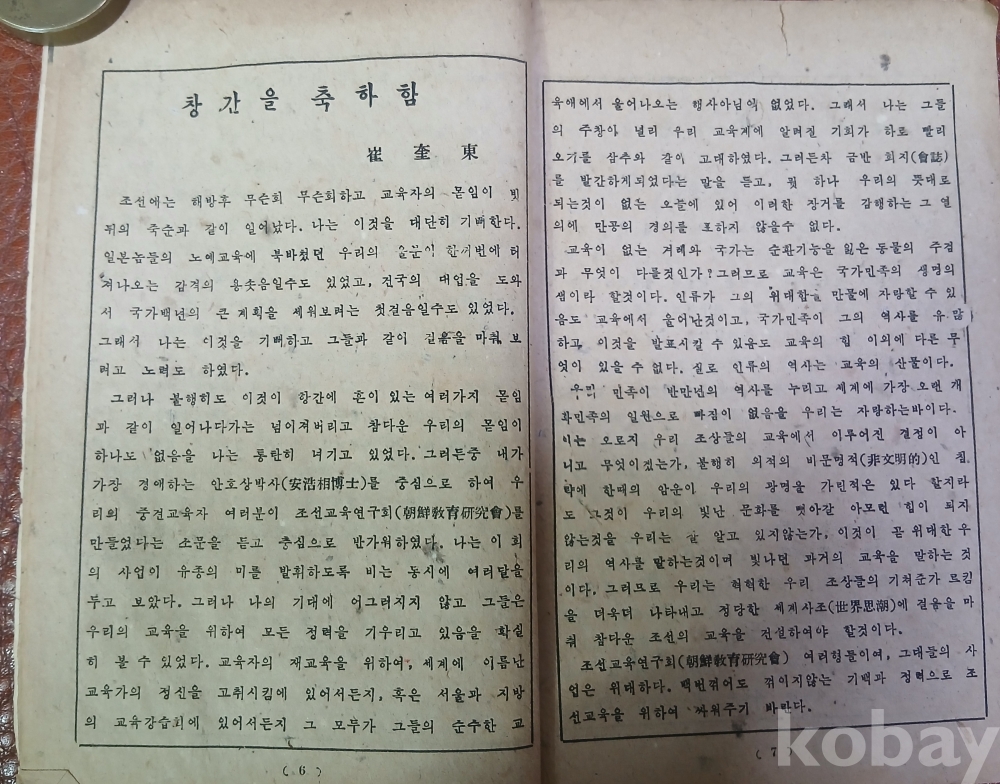 창간을 축하함
崔奎東
조선에는 해방후 무슨회 무슨회하고 교육자의 몯임이 빗
뒤의 죽순과 같이 일어났다. 나는 이것을 대단히 기뻐한다.
일본놈들의 노예교육에 북바쳤던 우리의 울분이 한꺼번에 터
져나오는 감격의 용솟음일수도 있었고, 전국의 대업을 도와
서 국가백년의 큰 계획을 세워보려는 첫걸음일수도 있었다.
그래서 나는 이것을 기뻐하고 그들과 같이 걸음을 마춰 보
려고 노력도 하였다.
그러나 불행히도 이것이 항간에 흔이 있는 여러가지 몯임
과 같이 일어나다가는 넘어져버리고 참다운 우리의 몯임이
하나도 없음을 나는 통탄히 너기고 있었다. 그러든중 내가
가장 경애하는 안호상박사(安浩相博士)를 중심으로 하여 우
리의 중견교육자 여러분이 조선교육연구회(朝鮮敎育硏究會)를
만들었다는 소문을 듣고 충심으로 반가워하였다. 나는 이 회
의 사업이 유종의 미를 발휘하도록 비는 동시에 여러달을
두고 보았다. 그러나 나의 기대에 어그러지지 않고 그들은
우리의 교육을 위하여 모든 정력을 기우리고 있음을 확실
히 볼 수 있었다. 교육자의 재교육을 위하여, 세계에 이름난
교육가의 정신을 고취시킴에 있어서든지, 혹은 서울과 지방
의 교육강습회에 있어서든지 그 모두가 그들의 순수한 교
(6)
육애에서 울어나오는 행사아님이 없었다. 그래서 나는 그들
의 주창아 널리 우리 교육계에 알려질 기회가 하로 빨리
오기를 삼추와 같이 고대하였다. 그러든차 금반 회지(會誌)
를 발간하게되었다는 말을 듣고, 뭣 하나 우리의 뜻대로
되는것이 없는 오늘에 있어 이러한 장거를 감행하는 그 열
의에 만공의 경의를 표하지 않을수 없다.
교육이 없는 겨레와 국가는 순환기능을 잃은 동물의 주검
과 무엇이 다를것인가? 그러므로 교육은 국가민족의 생명의
샘이라 할것이다. 인류가 그의 위대함을 만물에 자랑할 수 있
음도 교육에서 울어난것이고, 국가민족이 그의 역사를 유 많
하고 이것을 발표시킬 수 있음도 교육의 힘 이외에 다른 무
엇이 있을 수 없다. 실로 인류의 역사는 교육의 산물이다.
우리 민족이 반만년의 역사를 누리고 세계에 가장 오랜 개
화민족의 일원으로 빠짐이 없음을 우리는 자랑하는바이다.
이는 오로지 우리 조상들의 교육에서 이루어진 결정이 아
니고 무엇이겠는가, 불행히 외적의 비문명적(非文明的)인 침
략에 한때의 암운이 우리의 광명을 가린적은 있다 할지라
도 그것이 우리의 빛난 문화를 뺏아갈 아모런 힘이 되지
않는것을 우리는 잘 알고 있지않는가, 이것이 곧 위대한 우
리의 역사를 말하는것이며 빛나던 과거의 교육을 말하는 것
이다. 그러므로 우리는 혁혁한 우리 조상들의 기쳐준가르킴
을 더욱더 나타내고 정당한 세계사조(世界思潮)에 걸음을 마
춰 참다운 조선의 교육을 건설하여야 할것이다.
조선교육연구회(朝鮮敎育硏究會) 여러형들이여, 그대들의 사
업은 위대하다. 백번꺾어도 꺾이지않는 기백과 정력으로 조
선교육을 위하여 싸워주기 바란다.
(7)
kobay